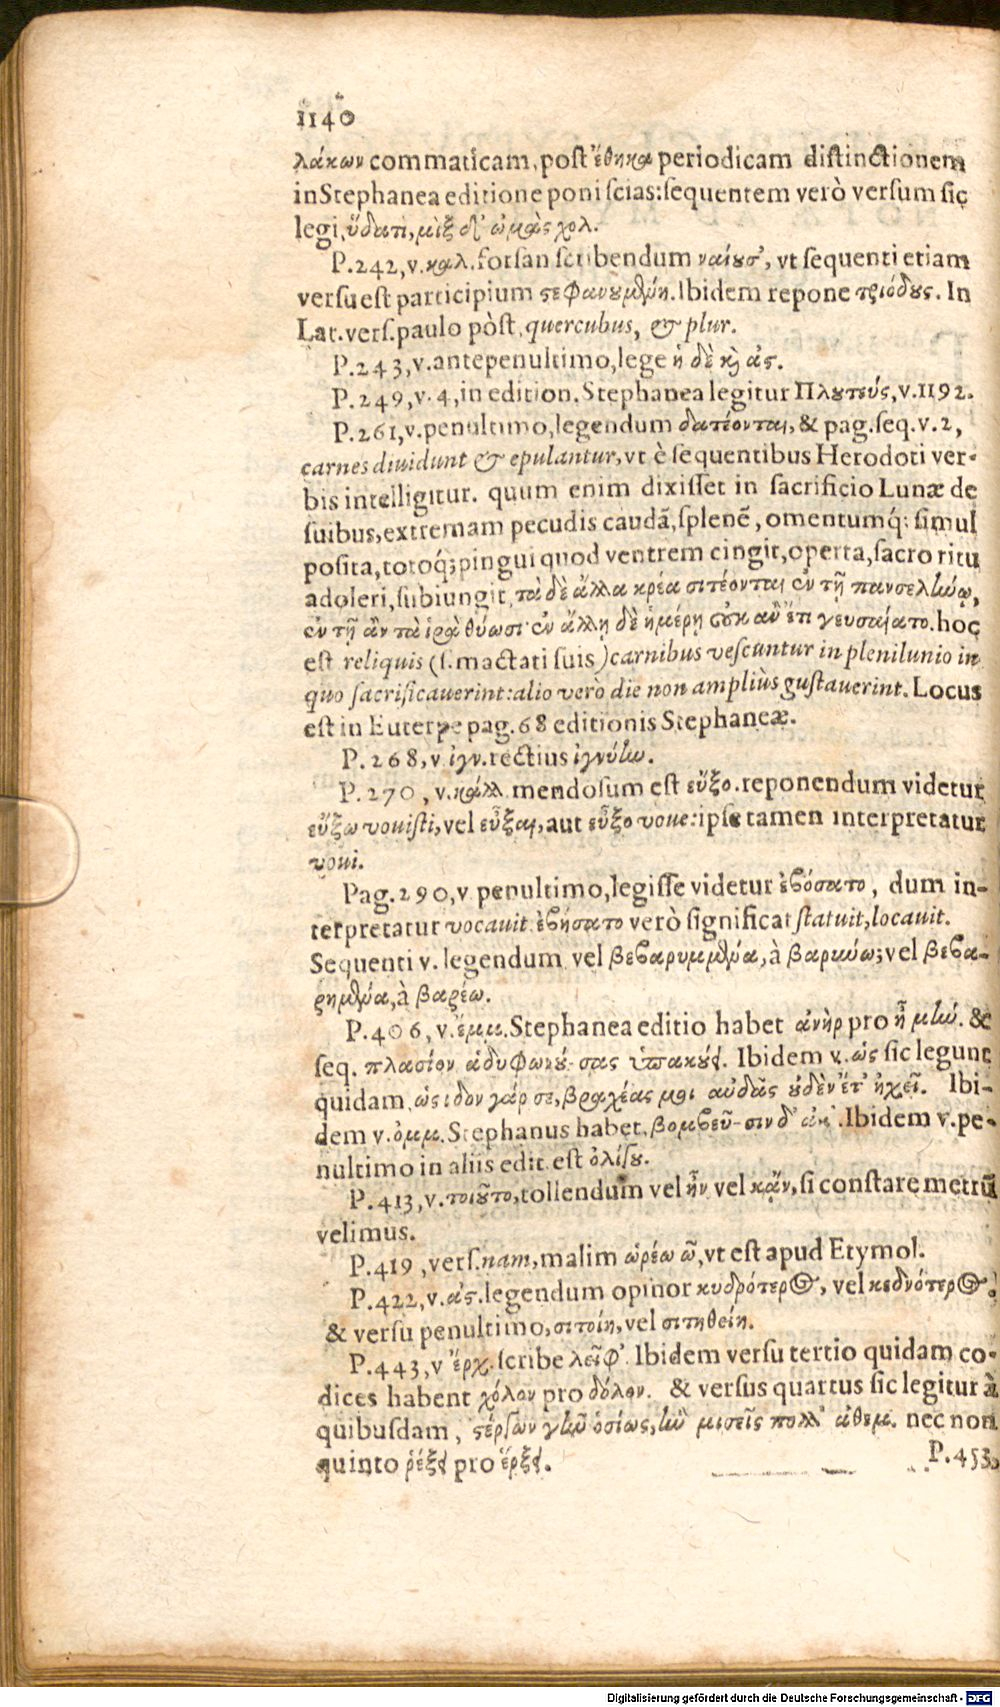 1140
λάκων commaticam, post ἔθηκα periodicam distinctionem
in Stephanea editione poni scias: sequentem verò versum sic
legi, ὕδατι, μὶξ δ' ὠμὰς χολ.
P.242, v. καλ. forsan scribendum ναίουσ', vt sequenti etiam
versu est participium στεφανουμένη. Ibidem repone τριόδους. In
Lat. vers. paulo pòst, quercubus, & plur.
P.243, v. antepenultimo, lege ἡ δὲ καὶ ἀς.
P.249, v. 4, in edition. Stephanea legitur Πλουτεύς, v. 1192.
P.261, v. penultimo, legendum δατέονται, & pag. seq. v. 2,
carnes diuidunt & epulantur, vt è sequentibus Herodoti ver-
bis intelligitur. quum enim dixisset in sacrificio Lunæ de
suibus, extremam pecudis caudā, splenē, omentumq́; simul
posita, totoq́; pingui quod ventrem cingit, operta, sacro ritu
adoleri, subiungit, τὰ δὲ ἄλλα κρέα σιτέονται ἐν τῇ πανσελήνῳ,
ἐν τῇ ἂν τὰ ἱρὰ θύωσι· ἐν ἄλλῃ δὲ ἡμέρῃ οὐκ ἂν ἔτι γευσαίατο. hoc
est reliquis (s. mactati suis) carnibus vescuntur in plenilunio in
quo sacrificauerint: alio verò die non ampliùs gustauerint. Locus
est in Euterpe pag. 68 editionis Stephaneæ.
P. 268, v. ἰγν. rectius ἰγνύην.
P. 270, v. κάλλ. mendosum est εὔξο. reponendum videtur
εὔξω vouisti, vel εὖξαι, aut εὖξο voue: ipse tamen interpretatur
voui.
Pag. 290, v penultimo, legisse videtur ἐβόσατο, dum in-
terpretatur vocauit. ἐβήσατο verò significat statuit, locauit.
Sequenti v. legendum vel βεβαρυμμένα, à βαρύνω; vel βεβα-
ρημένα, à βαρέω.
P. 406, v. ἔμμ. Stephanea editio habet ἀνὴρ pro ἦ μήν. &
seq. πλασίον ἁδυφωνού- σας ὑπακούει. Ibidem v. ὡς sic legunt
quidam, ὡς ιδον γάρ σε, βραχέας μοι αὐδᾶς οὐδὲν ἔτ' ἠχεῖ. Ibi-
dem v. ὀμμ. Stephanus habet, βομβεῦ- σιν δ' ἀκ'. Ibidem v. pe-
nultimo in aliis edit. est ὀλίγου.
P. 413, v. τοιοῦτο, tollendum vel ἦν vel κᾄν, si constare metrū
velimus.
P. 419, vers. nam, malim ὠρέω ὦ, vt est apud Etymol.
P. 422, v. ἀς. legendum opinor κυδρότερος, vel κεδνότερος.
& versu penultimo, σιτοίη, vel σιτηθείη.
P. 443, v ἔρχ. scribe λεῖφ'. Ibidem versu tertio quidam co-
dices habent χόλον pro δόλον. & versus quartus sic legitur à
quibusdam, στέρξων γ' ὁσίως, ἢν μισεῖς πολλ' ἀθεμ. nec non
quinto ῥέξει pro ἕρξει.
P.453,
Digitalisierung gefördert durch die Deutsche Forschungsgemeinschaft - DFG